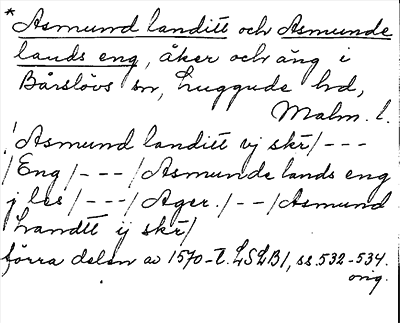 *Asmund landitt och Asmunde
lands eng, åker och äng i
Bårslövs sn, Luggude hd,
Malm. l.
! Asmund landitt vj skr/---
/Eng/---/Asmunde lands eng
j les/---/Ager./--/Asmund
Landtt ij skr/
förra delen av 1570-t. LSLB1, ss.532-534.
orig.